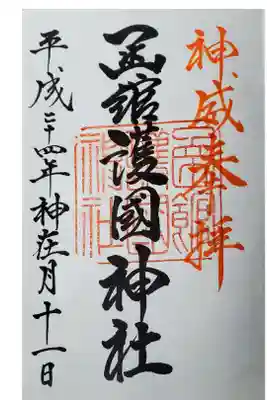 神威奉拝
函館護國神社
平成二十四年神在月十一日